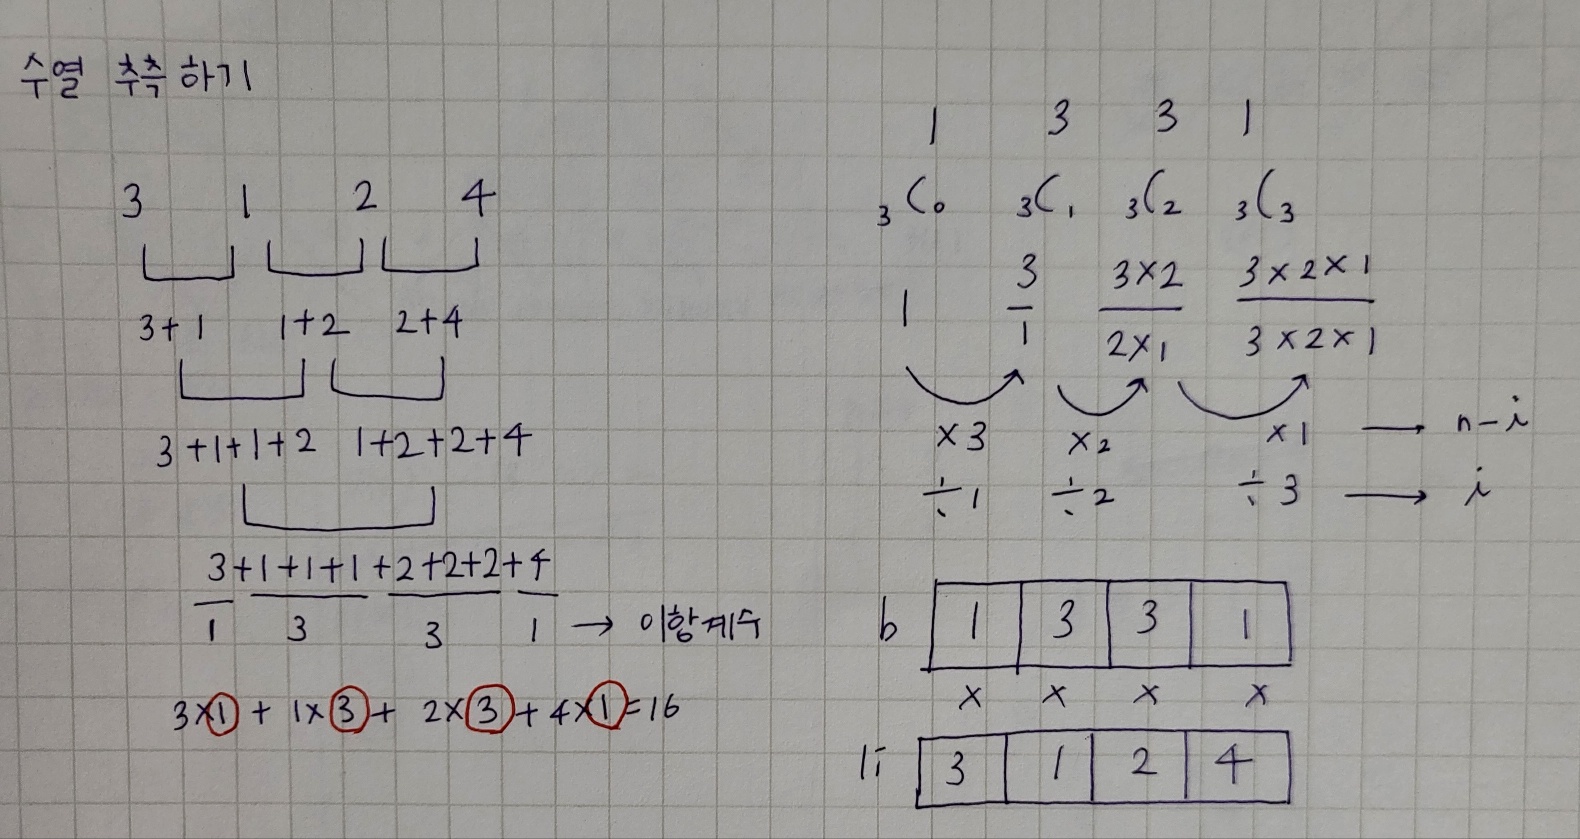 수열 추측하기
3 1 2 4
3+1 1+2 2+4
3+1+1+2 1+2+2+4
3+1+1+1+2+2+2+4
1 3 3 1 → 이항계수
3×1 + 1×3 + 2×3 + 4×1 = 16
1 3 3 1
₃C₀ ₃C₁ ₃C₂ ₃C₃
1 3/1 3×2/2×1 3×2×1/3×2×1
×3 ×2 ×1 → n-i
÷1 ÷2 ÷3 → i
b 1 3 3 1
× × × ×
li 3 1 2 4